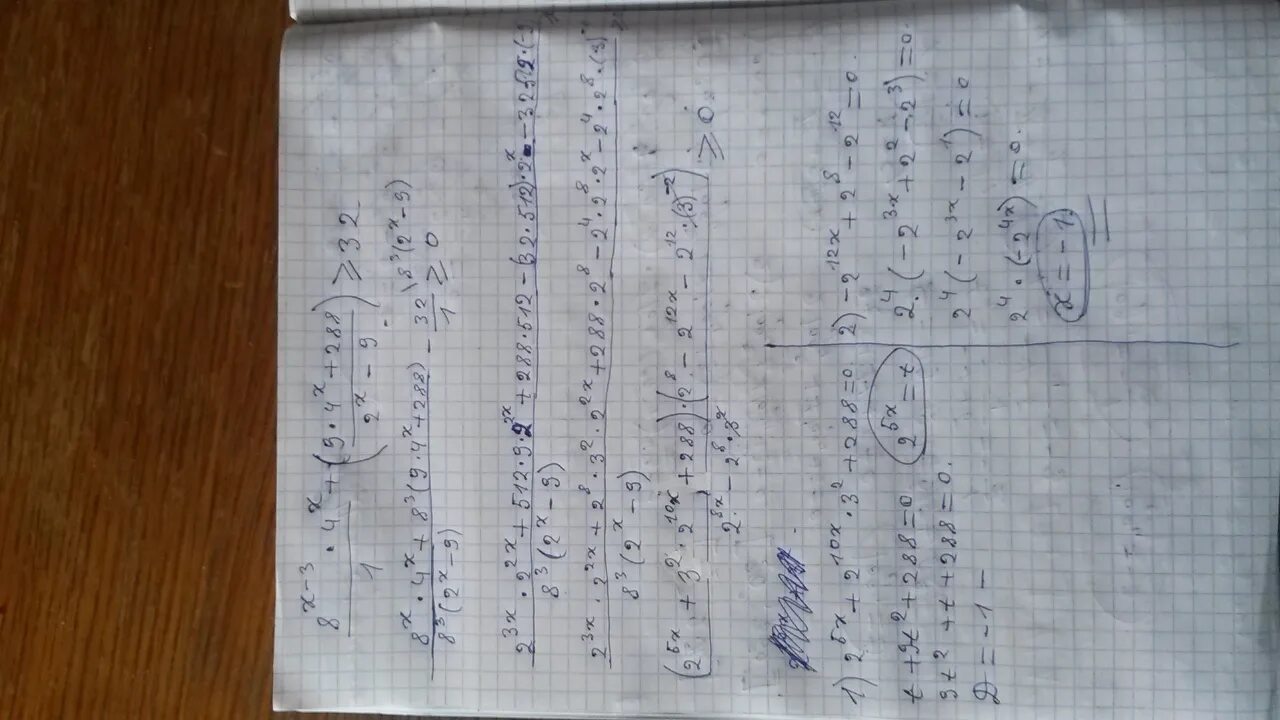 8^(x-3) · 4^x / 1 + ((9·4^x + 288) / (2^x - 9)) ≥ 32
(8^x · 4^x + 8^3(9·4^x + 288)) / (8^3(2^x - 9)) - 32/1 \8^3(2^x - 9) ≥ 0
2^3x · 2^2x + 512·9·2^2x + 288·512 - (32·512)·2^x - 32
8^3(2^x - 9)
2^3x · 2^2x + 2^8 · 3^2 · 2^2x + 288·2^8 - 2^4 · 2^8 · 2^x - 2^4 · 2^8 · (3)
8^3(2^x - 9)
(2^5x + 3^2 · 2^10x + 288)·(2^8 - 2^12x - 2^12 · (3)^-2) ≥ 0
2^8x - 2^8 · 3^x
1) 2^5x + 2^10x · 3^2 + 288 = 0
t + 9t^2 + 288 = 0. 2^5x = t
9t^2 + t + 288 = 0.
D = -1 -
2) -2^12x + 2^8 - 2^12 = 0.
2^4 · (-2^3x + 2^2 - 2^3) = 0
2^4 (-2^3x - 2^1) = 0
2^4 · (-2^4x) = 0.
x = -1.